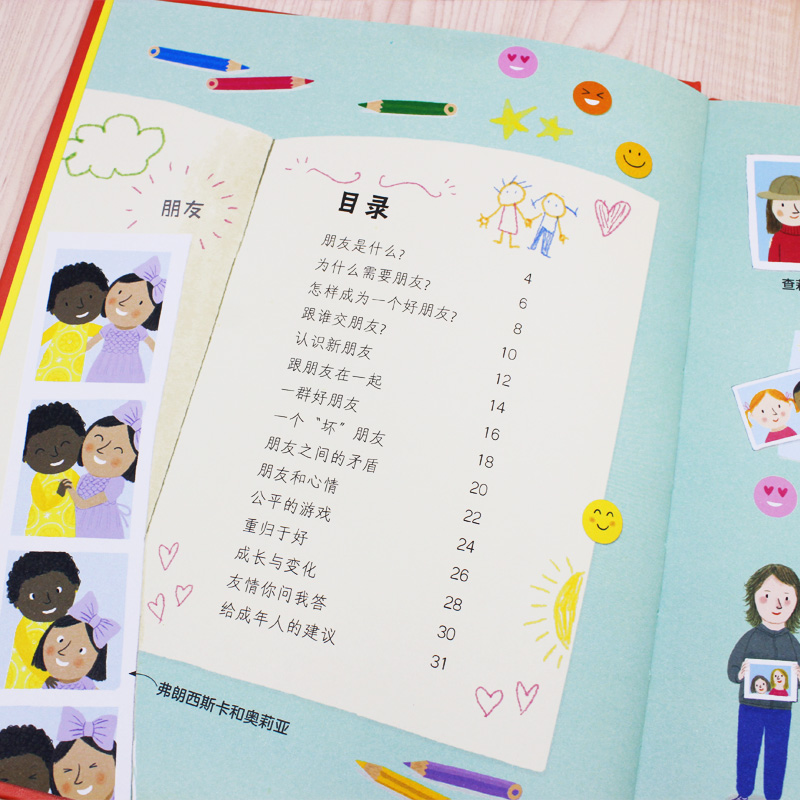 朋友
目录
朋友是什么? 4
为什么需要朋友? 6
怎样成为一个好朋友? 8
跟谁交朋友? 10
认识新朋友 12
跟朋友在一起 14
一群好朋友 16
一个“坏”朋友 18
朋友之间的矛盾 20
朋友和心情 22
公平的游戏 24
重归于好 26
成长与变化 28
友情你问我答 30
给成年人的建议 31
弗朗西斯卡和奥莉亚
查